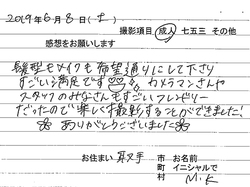 2019年6月8日(土)
撮影項目 成人 七五三 その他
感想をお願いします
髪型もメイクも希望通りにして下さり
すごい満足です カメラマンさんや
スタッフのみなさんもすごいフレンドリー
だったので楽しく撮影することができました!
ありがとうございました
お住まい 取手 市 町 村 お名前 イニシャルで M.K